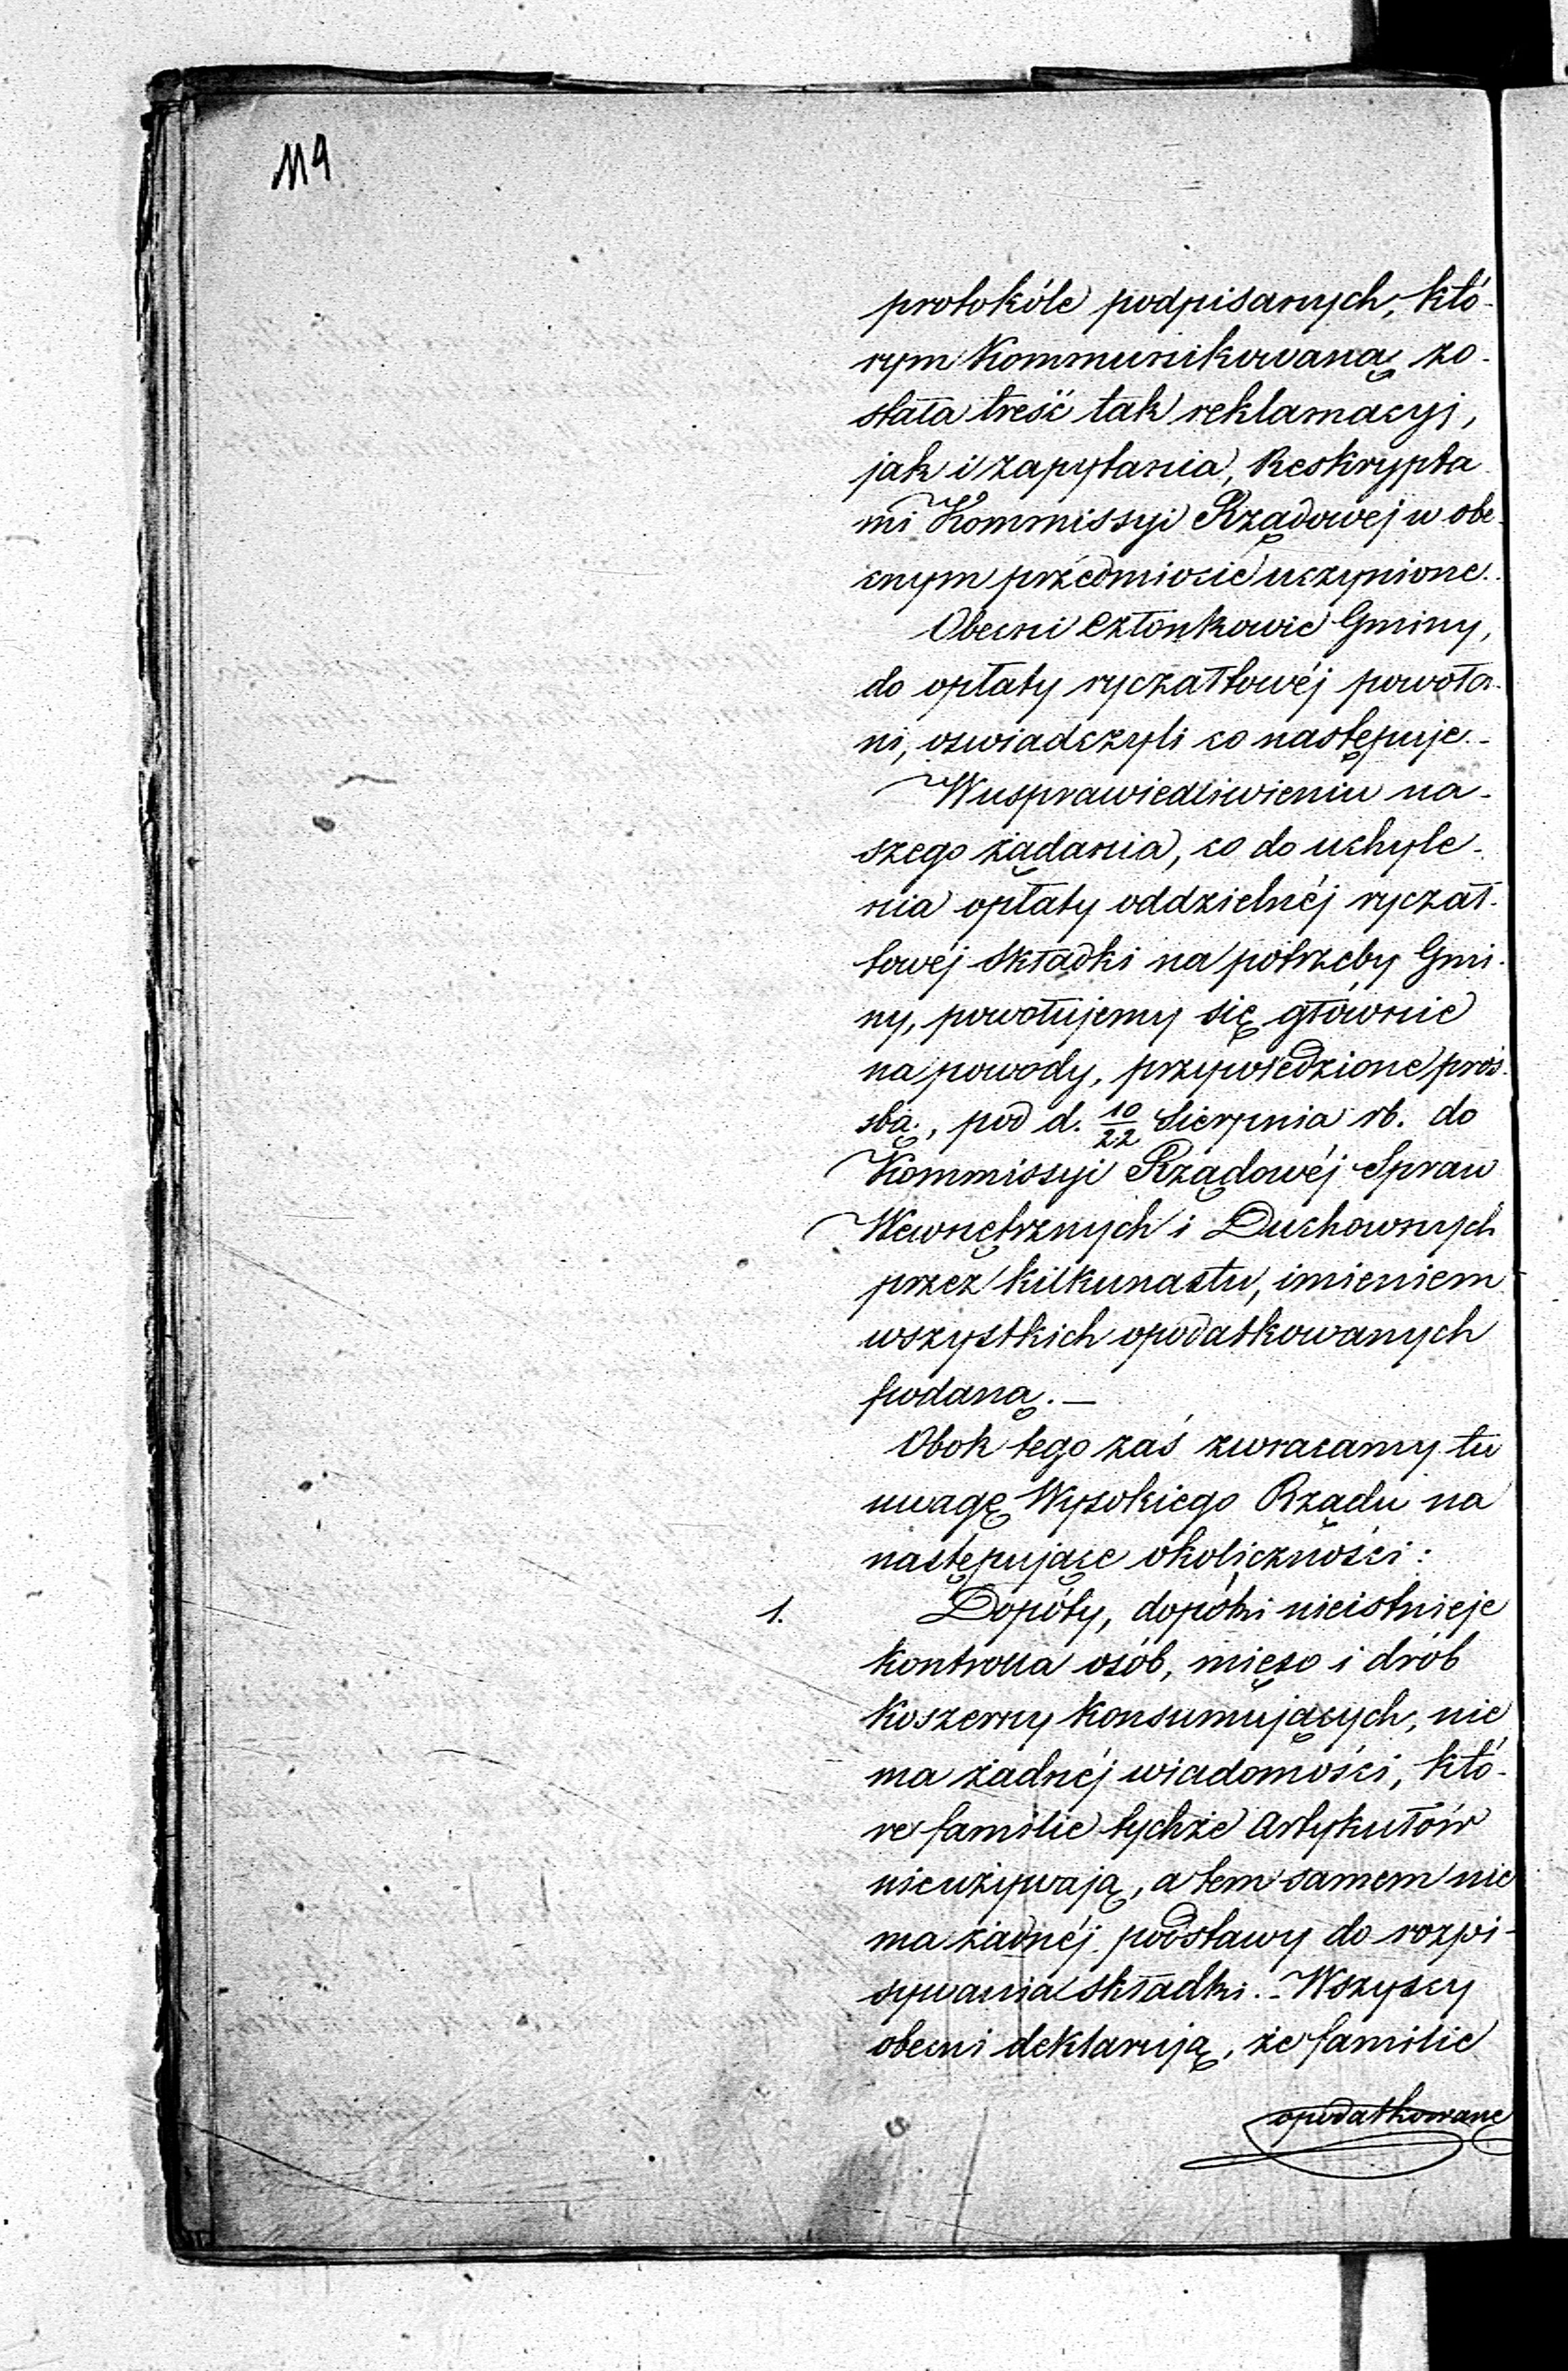 119
protokóle podpisanych, któ-
rym Kommunikowaną zo-
stała treść tak reklamacyi,
jak i zapytania, Reskrypta-
mi Kommissyi Rządowej w obe-
cnym przedmiocie uczynione.
Obecni Członkowie Gminy,
do opłaty ryczałtowéj powoła-
ni, oświadczyli co następuje.-
W usprawiedliwieniu na-
szego żądania, co do uchyle-
nia opłaty oddzielnéj ryczał-
towéj składki na potrzeby Gmi-
ny, powołujemy się głównie
na powody, przywiedzione proś-
sbą, pod d. 10/22 Sierpnia rb. do
Kommissyi Rządowéj Spraw
Wewnętrznych i Duchownych
przez kilkunastu, imieniem
wszystkich opodatkowanych
podaną.-
Obok tego zaś zwracamy tu
uwagę Wysokiego Rządu na
następujące okoliczności:
1. Dopóty, dopóki nieistnieje
kontrolla osób, mięso i drób
koszerny konsumujących, nie
ma żadnéj wiadomości, któ-
re familie tychże artykułów
nieużywają, a tem samem nie
ma żadnéj podstawy do rozpi-
sywania składki.- Wszyscy
obecni deklarują, że familie
opodatkowane